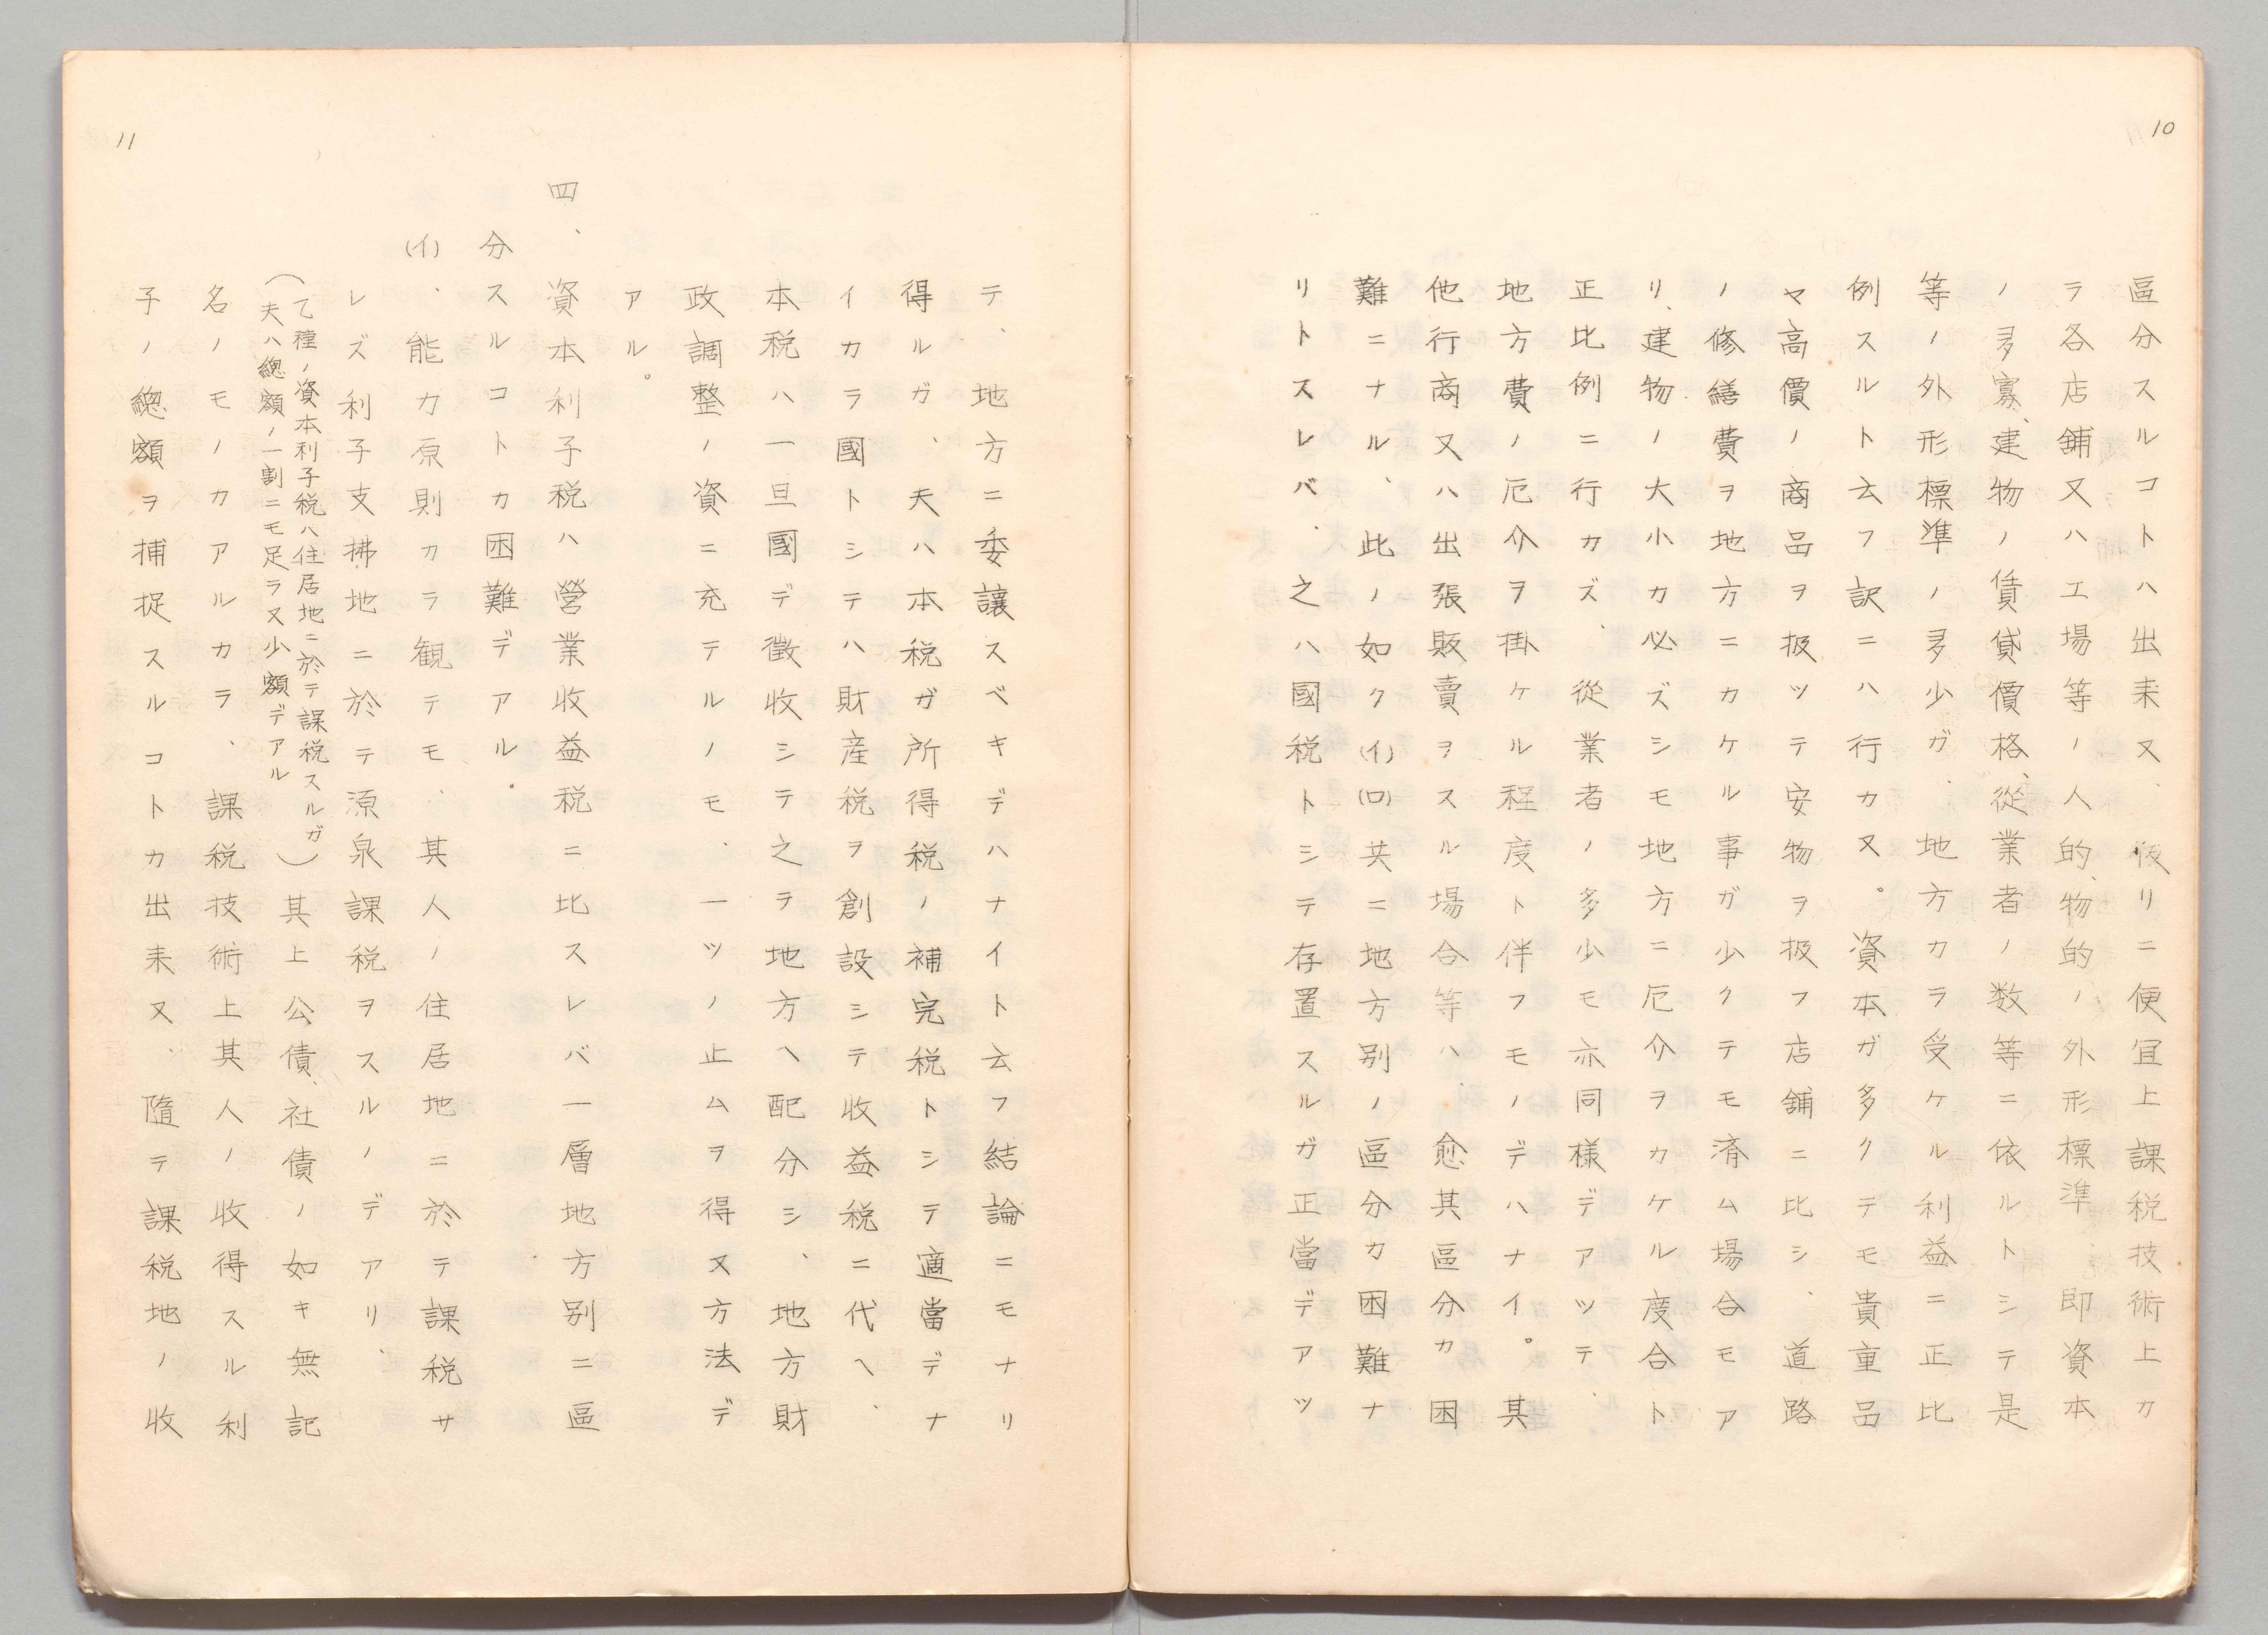 10
區分スルコトハ出来ヌ、假リニ便宜上課税技術上カ
ラ各店舗又ハ工場等ノ人的、物的ノ外形標準、即資本
ノ多寡、建物ノ賃貸價格、從業者ノ数等ニ依ルトシテ是
等ノ外形標準ノ多少ガ、地方カラ受ケル利益ニ正比
例スルト云フ訳ニハ行カヌ。資本ガ多クテモ貴重品
ヤ高價ノ商品ヲ扱ッテ安物ヲ扱フ店舗ニ比シ、道路
ノ修繕費ヲ地方ニカケル事ガ少クテモ済ム場合モア
リ、建物ノ大小カ必ズシモ地方ニ厄介ヲカケル度合ト
正比例ニ行カズ、從業者ノ多少モ亦同様デアツテ、
地方費ノ厄介ヲ掛ケル程度ト伴フモノデハナイ。其
他行商又ハ出張販賣ヲスル場合等ハ、愈其區分カ困
難ニナル、此ノ如ク(イ)(ロ)共ニ地方別ノ區分カ困難ナ
リトスレバ、之ハ國税トシテ存置スルガ正當デアツ
11
テ、地方ニ委讓スベキデハナイト云フ結論ニモナリ
得ルガ、夫ハ本税ガ所得税ノ補完税トシテ適當デナ
イカラ國トシテハ財産税ヲ創設シテ收益税ニ代ヘ、
本税ハ一旦國デ徴收シテ之ヲ地方ヘ配分シ、地方財
政調整ノ資ニ充テルノモ、一ツノ止ムヲ得ヌ方法デ
アル。
四、資本利子税ハ營業收益税ニ比スレバ一層地方別ニ區
分スルコトカ困難デアル。
(イ)、能力原則カラ観テモ、其人ノ住居地ニ於テ課税サ
レズ利子支拂地ニ於テ源泉課税ヲスルノデアリ、
(乙種ノ資本利子税ハ住居地ニ於テ課税スルガ
夫ハ總額ノ一割ニモ足ラヌ少額デアル)其上公債、社債ノ如キ無記
名ノモノカアルカラ、課税技術上其人ノ收得スル利
子ノ總額ヲ捕捉スルコトカ出来ヌ、隨テ課税地ノ收